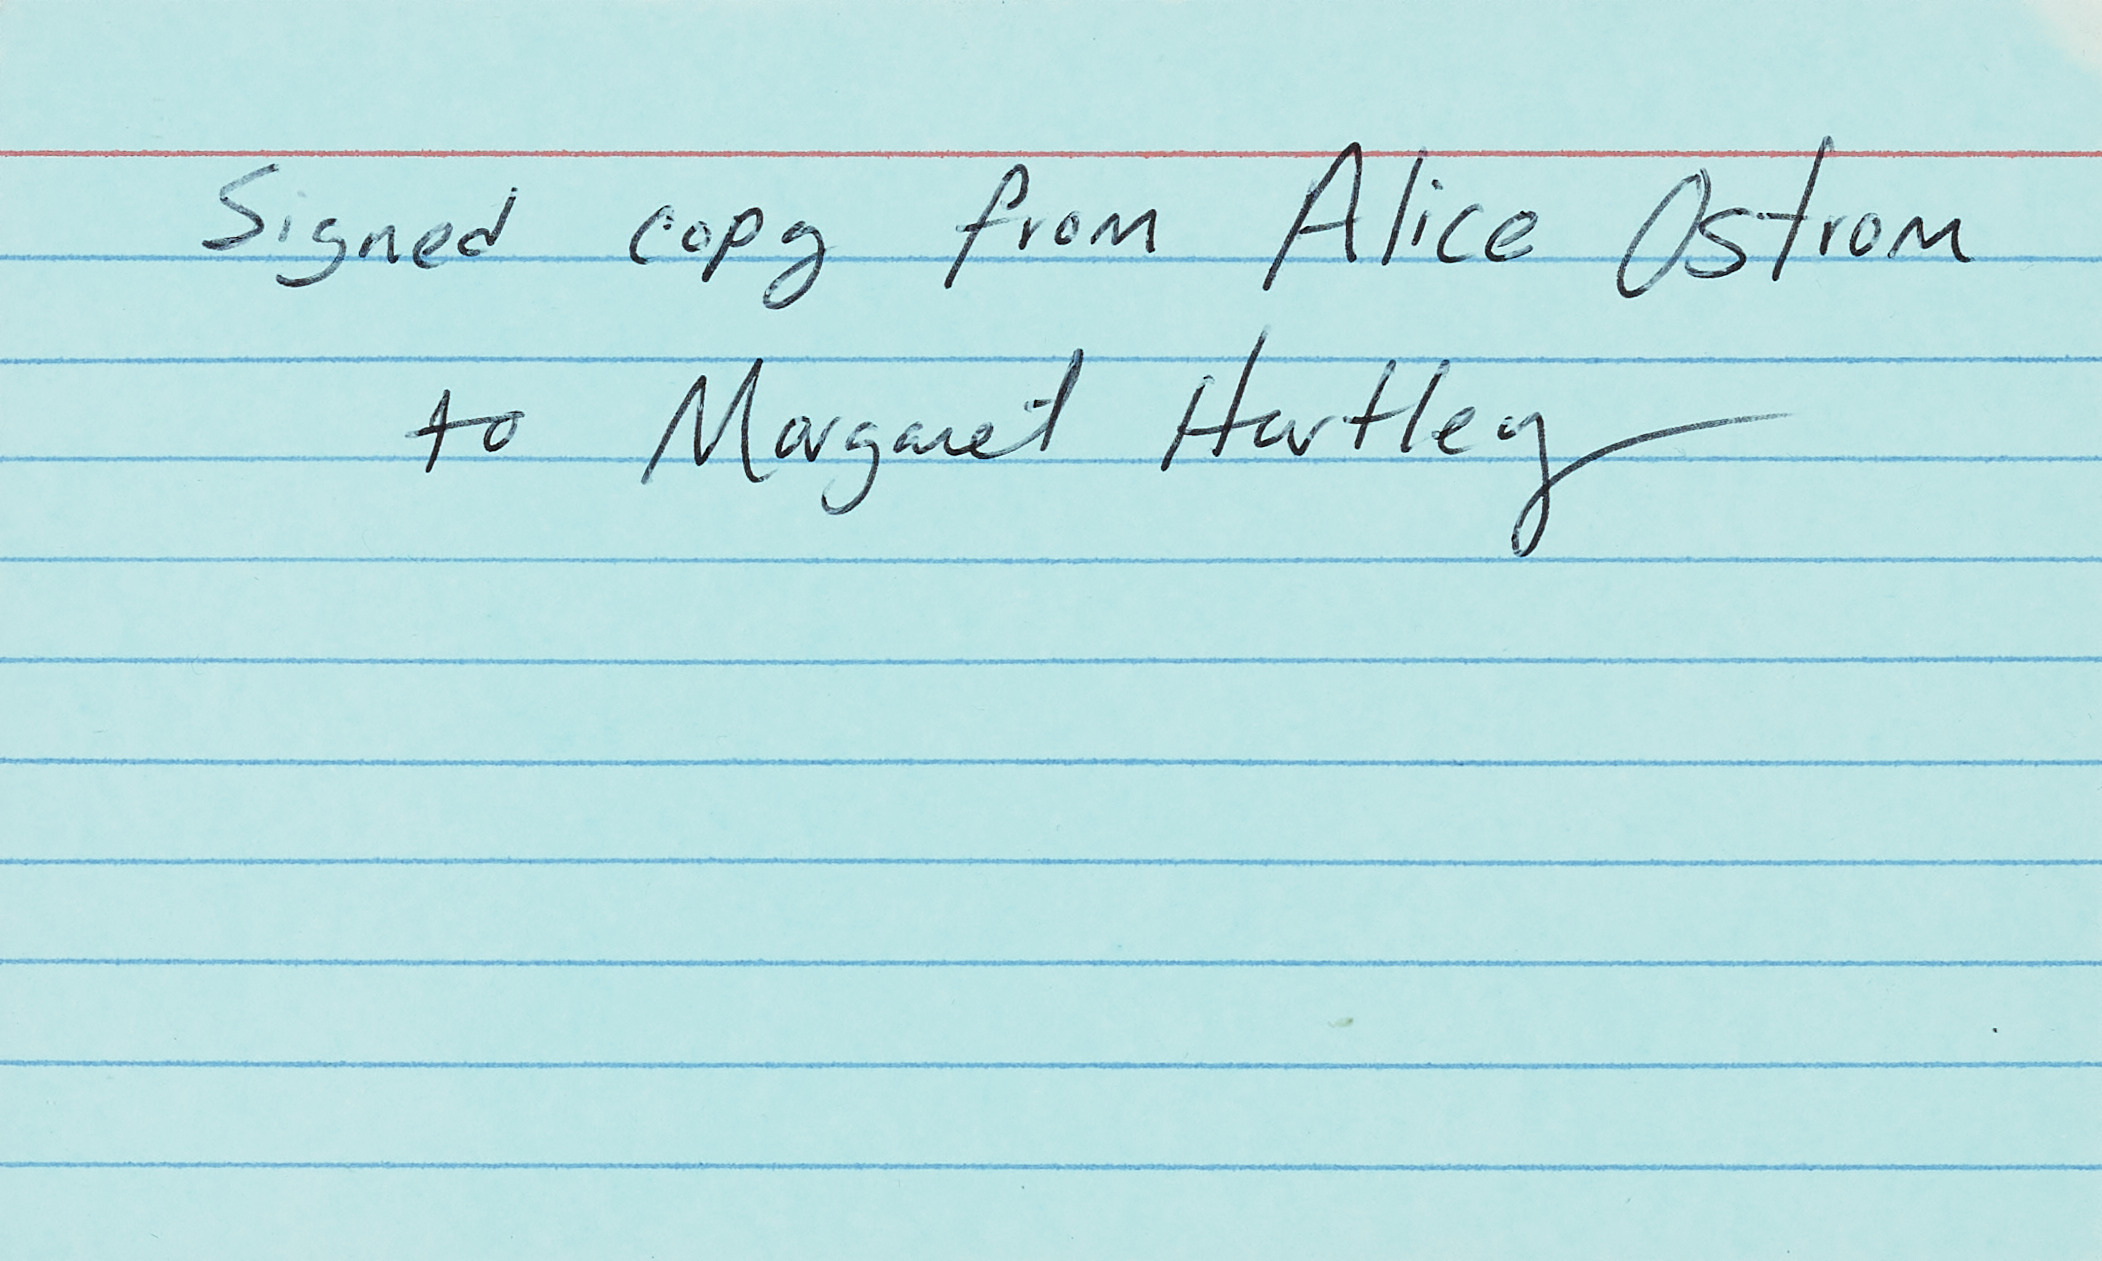 Signed copy from Alice Ostrom
to Margaret Hartley